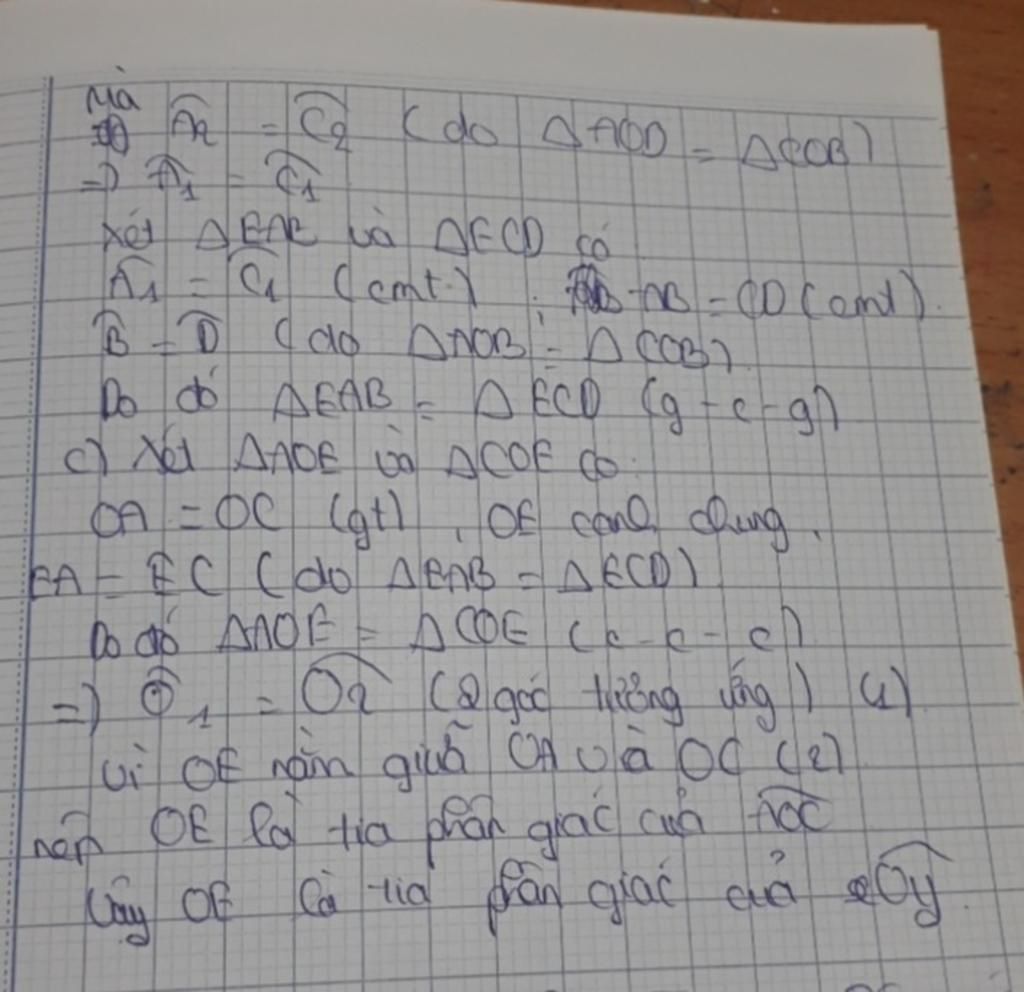 Mà
Â₂ = Ĉ₂ (do ΔAOD = ΔCOB)
=> Â₁ = Ĉ₁
Xét ΔEAB và ΔECD có
Â₁ = Ĉ₁ (cmt) ; AB = CD (cmt).
B̂ = D̂ (do ΔAOB = ΔCOB)
Do đó ΔEAB = ΔECD (g-c-g)
c) Xét ΔAOE và ΔCOE có:
OA = OC (gt) , OE cạnh chung.
EA = EC (do ΔEAB = ΔECD)
Do đó ΔAOE = ΔCOE (c-c-c)
=> Ô₁ = Ô₂ (2 góc tương ứng) (1)
Vì OE nằm giữa OA và OC (2)
nên OE là tia phân giác của AOC
Vậy OE là tia phân giác của xOy